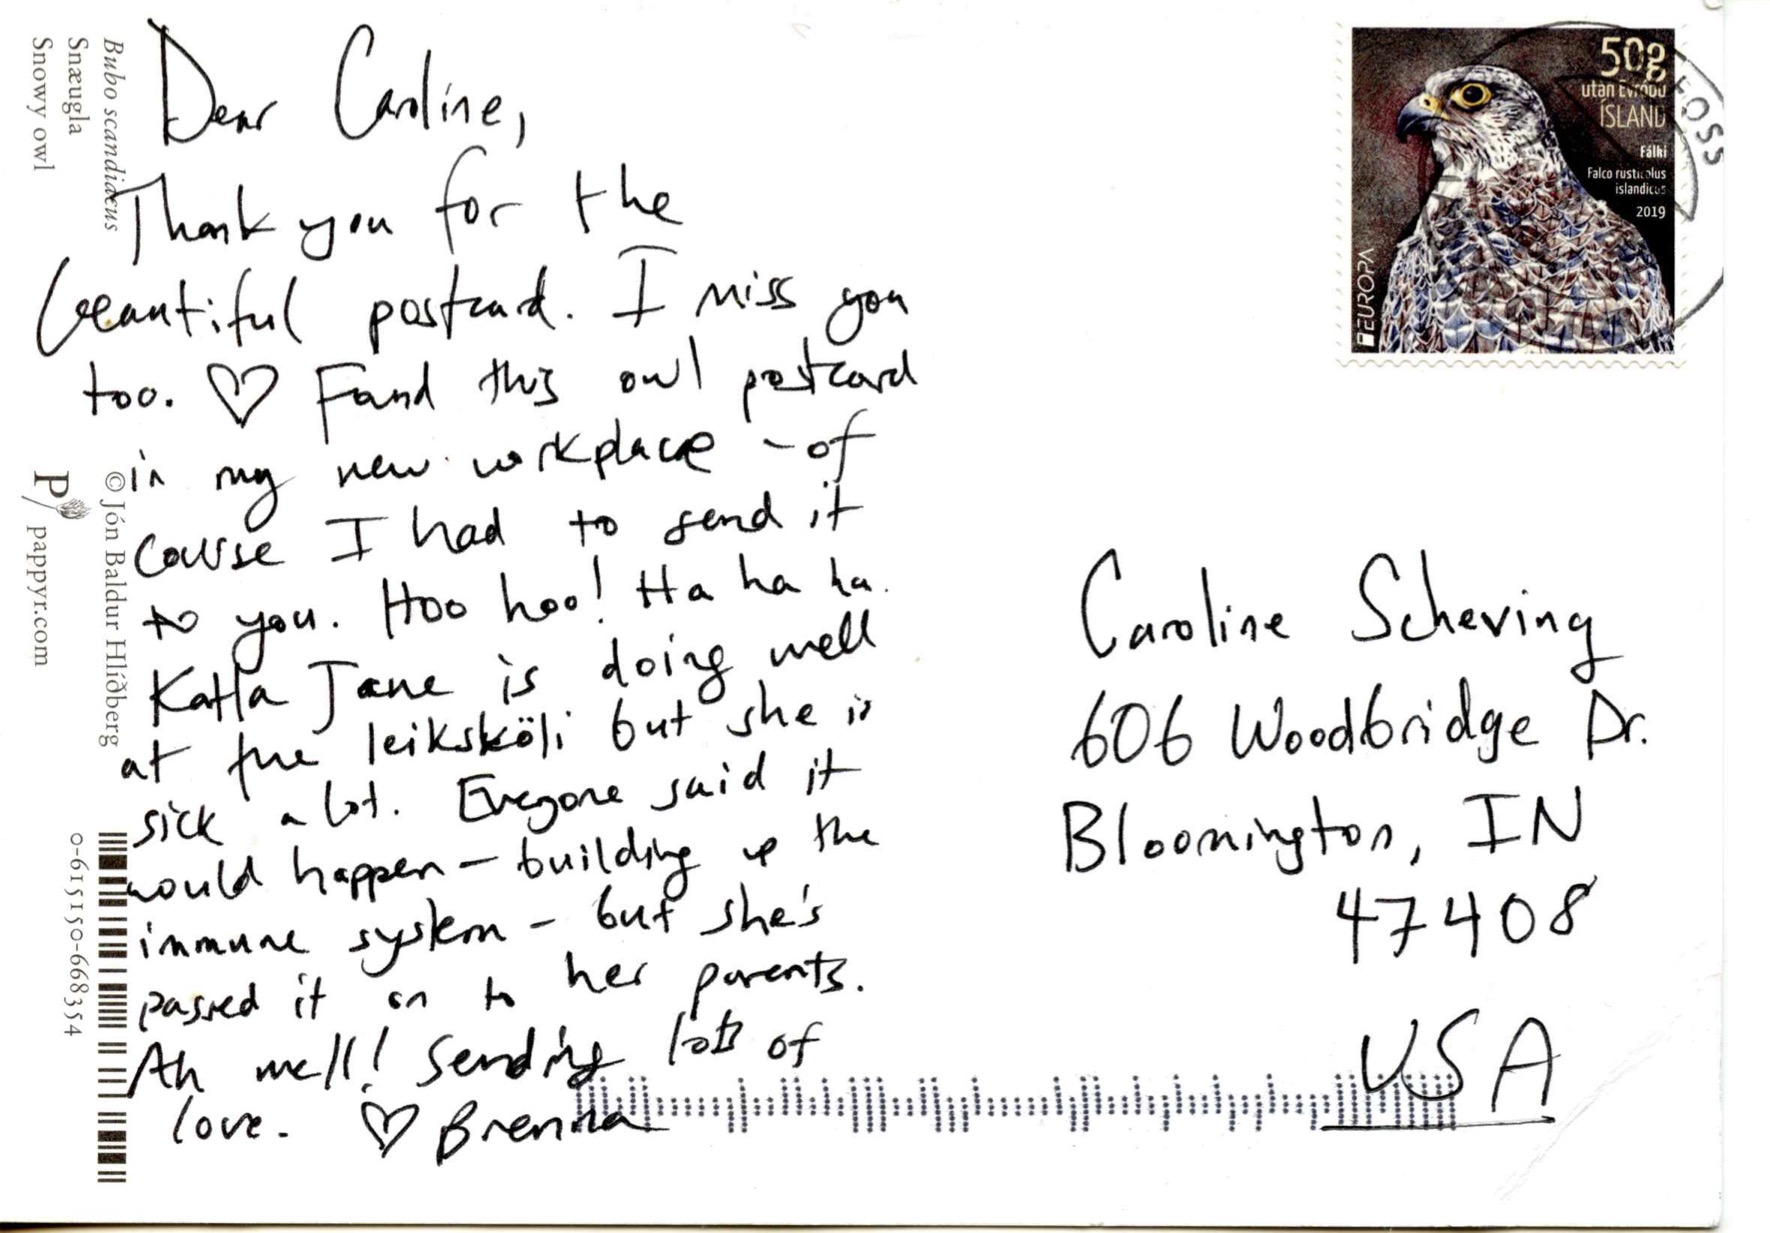 Bubo scandiacus
Snæugla
Snowy owl
© Jón Baldur Hlíðberg
P
pappyr.com
0-615150-668354
Dear Caroline,
Thank you for the
beautiful postcard. I miss you
too. ♡ Found this owl postcard
in my new workplace - of
course I had to send it
to you. Hoo hoo! Ha ha ha.
Katla Jane is doing well
at the leiksköli but she is
sick a lot. Everyone said it
would happen - building up the
immune system - but she's
passed it on to her parents.
Ah well! Sending lots of
love. ♡ Brenna
50g
utan Evrópu
ÍSLAND
Fálki
Falco rusticolus
islandicus
2019
EUROPA
FOSS
Caroline Scheving
606 Woodbridge Dr.
Bloomington, IN
47408
USA